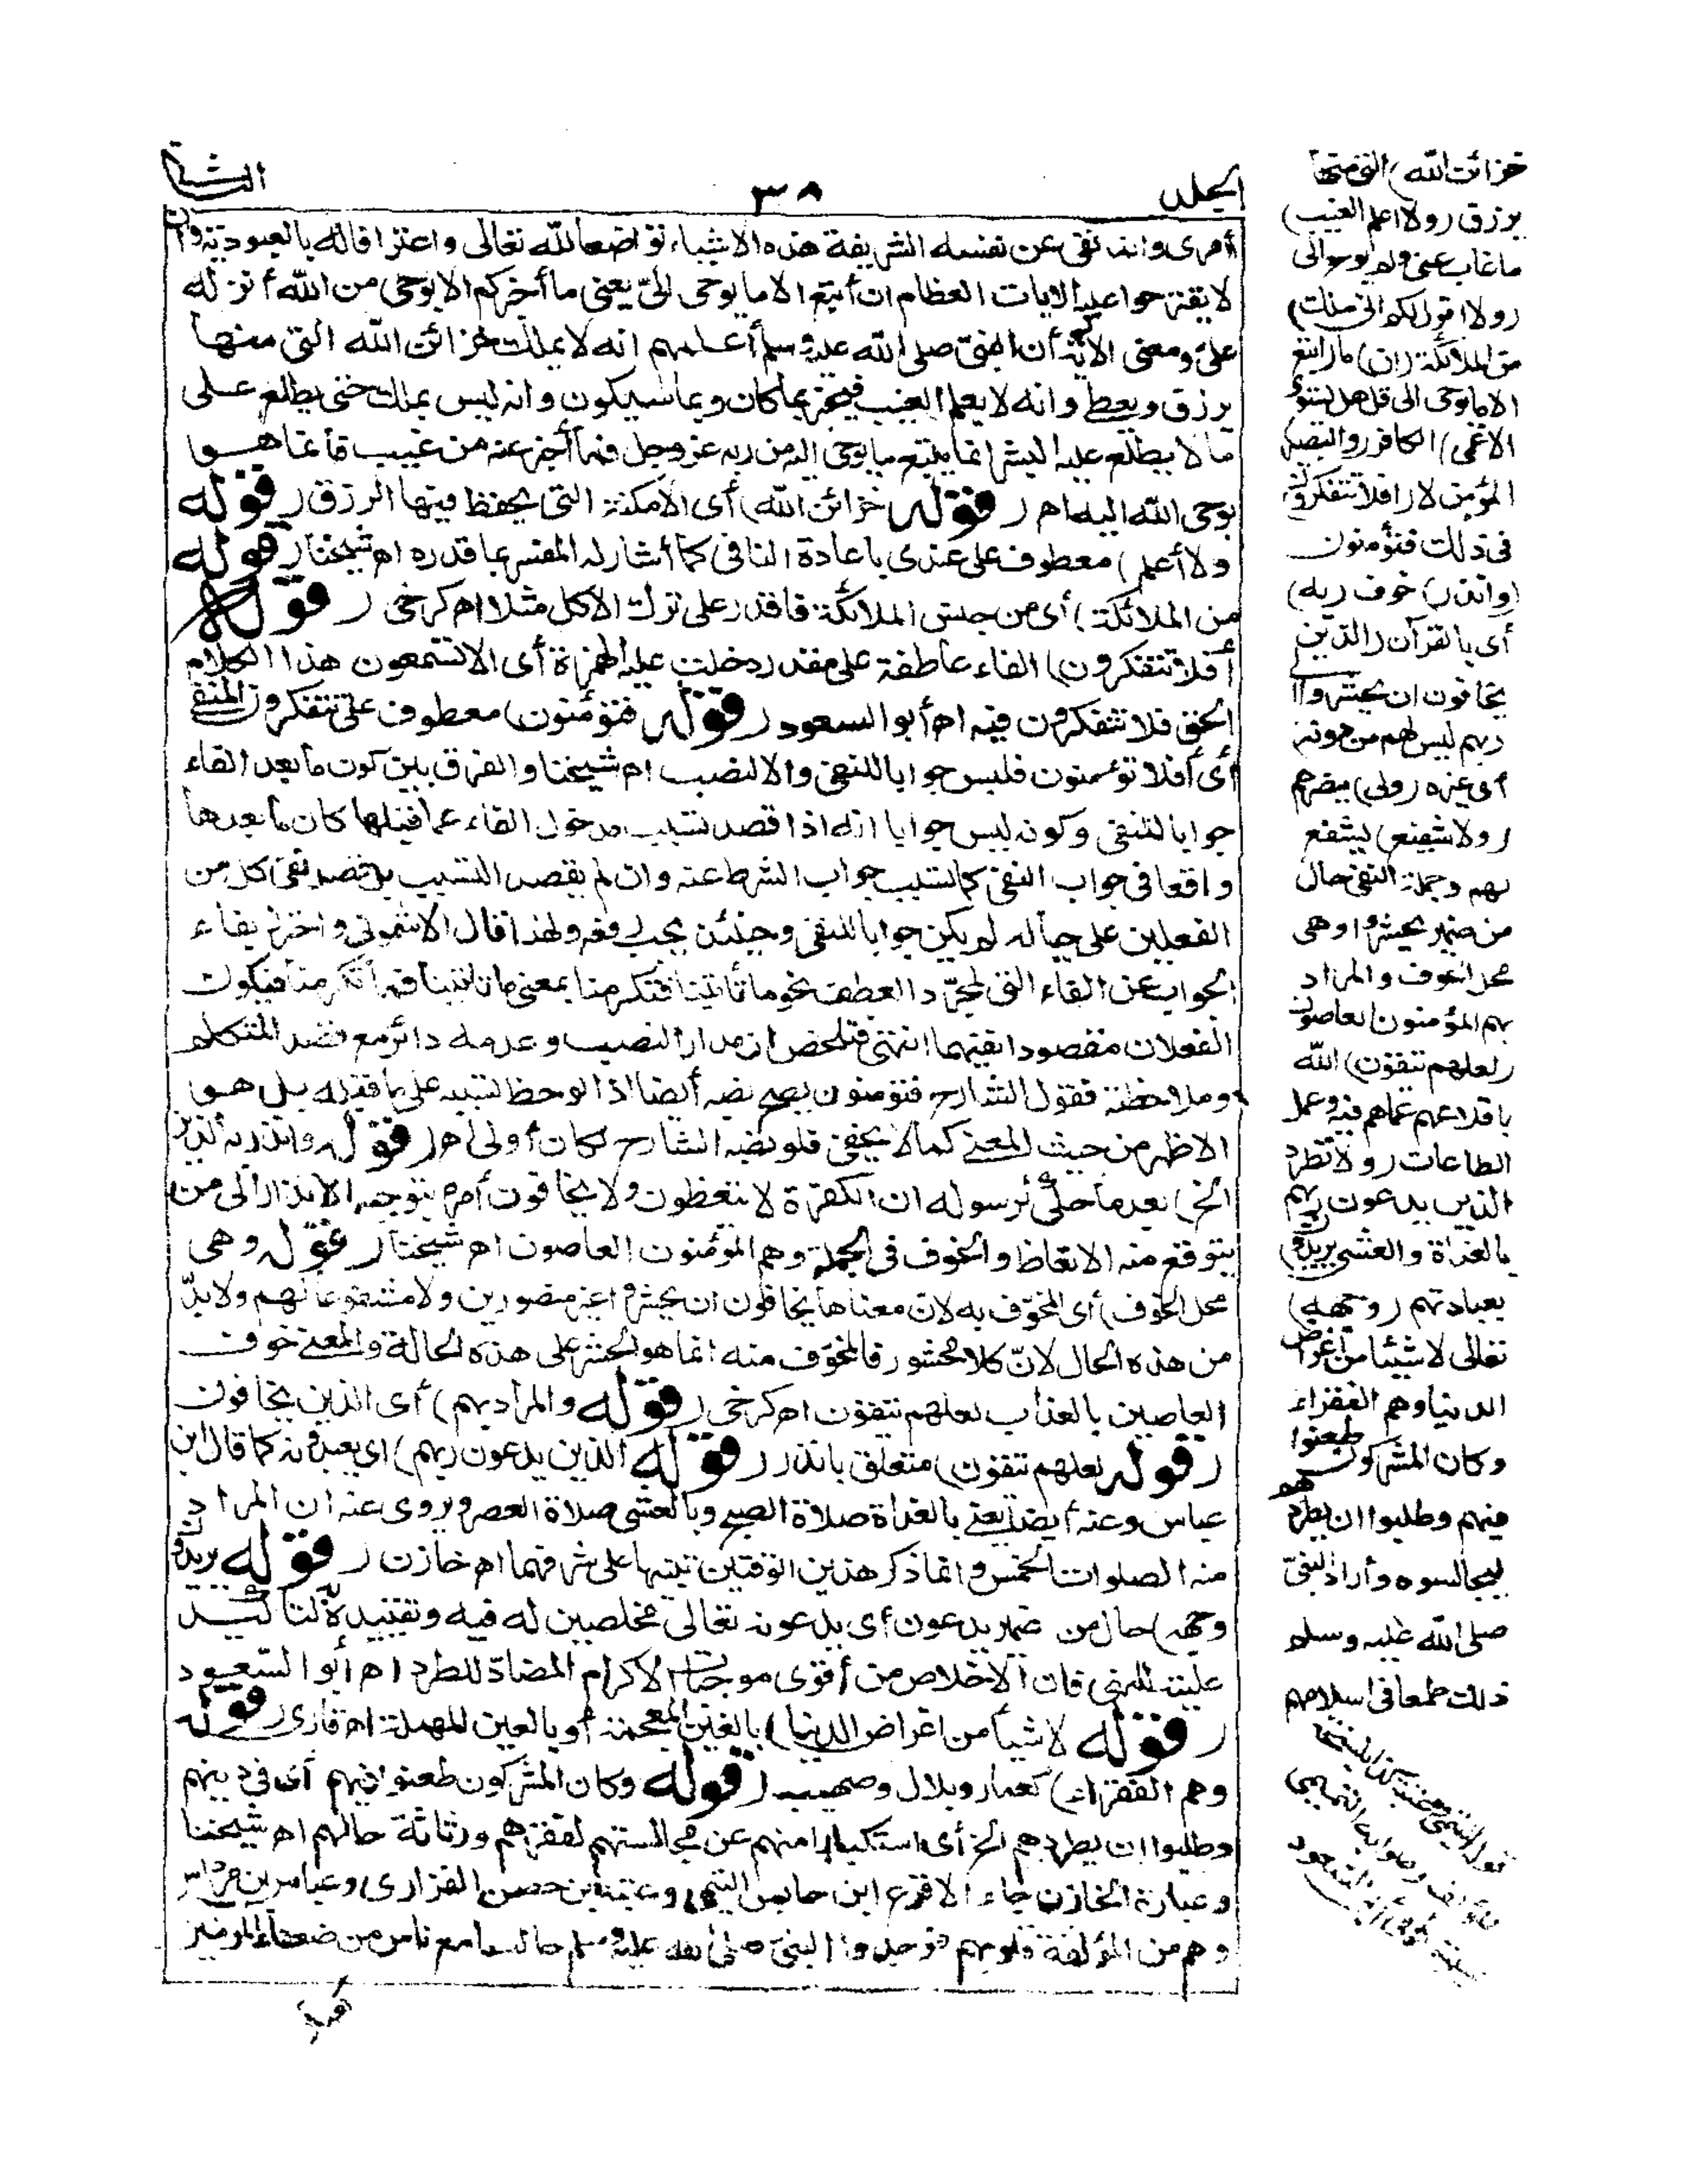 الجلد
٣٨
الثانى
أمرى وانه نفى عن نفسه الشريفة هذه الاشياء تواضعا لله تعالى واعترافا له بالعبودية وان
لا يقترحوا عليه الايات العظام ان أتبع الا ما يوحى الىّ يعنى ما أخبركم الا بوحى من الله أنزله
علىّ ومعنى الآية أن النبىّ صلى الله عليه وسلم أعلمهم انه لا يملك خزائن الله التى منها
يرزق ويعطى وانه لا يعلم الغيب فيخبر بما كان وبما سيكون وانه ليس بملك حتى يطلع على
ما لا يطلع عليه البشر انما يتبع ما يوحى اليه من ربه عز وجل فما أخبر عنه من غيب فانما هو
بوحى الله اليه اه (قوله خزائن الله) أى الامكنة التى يحفظ فيها الرزق (قوله
ولا أعلم) معطوف على عندى باعادة النافى كما أشار له المفسر بما قدره اه شيخنا (قوله
من الملائكة) أى من جنس الملائكة فاقدر على ترك الاكل مثلا اه كرخى (قوله
أفلا تتفكرون) الفاء عاطفة على مقدر دخلت عليه الهمزة أى الا تسمعون هذا الكلام
الحق فلا تتفكرون فيه اه أبو السعود (قوله فتؤمنون) معطوف على تتفكرون المنفى
أى أفلا تؤمنون فليس جوابا للنفى والا لنصب اه شيخنا والفرق بين كون ما بعد الفاء
جوابا للنفى وكونه ليس جوابا انه اذا قصد تسبب مدخول الفاء عما قبلها كان ما بعدها
واقعا فى جواب النفى كما تسبب جواب الشرط عنه وان لم يقصد التسبب بل قصد نفى كل من
الفعلين على حياله لم يكن جوابا للنفى وحينئذ يجب رفعه ولهذا قال الاشمونى واحترز بفاء
الجواب عن الفاء التى لمجرّد العطف نحو ما تأتينا فتكرمنا بمعنى ما تأتينا فما تكرمنا فيكون
الفعلان مقصودا نفيهما انتهى فتلخص ان مدار النصب وعدمه دائر مع قصد المتكلم
وملاحظته فقول الشارح فتؤمنون يصح نصبه أيضا اذا لوحظ تسببه على ما قبله بل هو
الاظهر من حيث المعنى كما لا يخفى فلو نصبه الشارح لكان أولى اه (قوله وانذر به الذين
الخ) بعد ما حكى لرسوله ان الكفرة لا يتعظون ولا يخافون أمره بتوجيه الانذار الى من
يتوقع منه الاتعاظ والخوف فى الجملة وهم المؤمنون العاصون اه شيخنا (قوله وهى
محل الخوف) أى المخوّف به لان معناها يخافون ان يحشروا غير منصورين ولا مشفوعا لهم ولا بدّ
من هذه الحال لانّ كلا محشور فالمخوّف منه انما هو الحشر على هذه الحالة والمعنى خوف
العاصين بالعذاب لعلهم يتقون اه كرخى (قوله والمراد بهم) أى الذين يخافون
(قوله لعلهم يتقون) متعلق بانذر (قوله الذين يدعون ربهم) اى يعبدونه كما قال ابن
عباس وعنه أيضا يعنى بالغداة صلاة الصبح وبالعشى صلاة العصر ويروى عنه ان المراد
منه الصلوات الخمس وانما ذكر هذين الوقتين تنبيها على شرفهما اه خازن (قوله يريدون
وجهه) حال من ضمير يدعون أى يدعونه تعالى مخلصين له فيه وتقييده لتأكيد
عليته للنهى فان الاخلاص من أقوى موجبات الاكرام المضادّ للطرد اه أبو السعود
(قوله لا شيأ من اغراض الدنيا) بالغين المعجمة أو بالعين المهملة اه قارى (قوله
وهم الفقراء) كعمار وبلال وصهيب (قوله وكان المشركون طعنوا فيهم أى فى دينهم
وطلبوا ان يطردهم الخ أى استكبارا منهم عن مجالستهم لفقرهم ورثاثة حالهم اه شيخنا
وعبارة الخازن جاء الاقرع ابن حابس التميمى وعيينة بن حصن الفزارى وعباس بن مرداس
وهم من المؤلفة قلوبهم فوجدوا النبىّ صلى الله عليه وسلم جالسا مع ناس من ضعفاء المؤمنين
خزائن الله) التى منها
يرزق (ولا) اعلم الغيب)
ما غاب عنى ولم يوح الى
(ولا اقول لكم انى ملك)
من الملائكة (ان) ما (اتبع
الا ما يوحى الى قل هل يستوى
الاعمى) الكافر (والبصير)
المؤمن لا (افلا تتفكرون)
فى ذلك فتؤمنون
(وانذر) خوف (به)
أى بالقرآن (الذين
يخافون ان يحشروا الى
ربهم ليس لهم من دونه)
أى غيره (ولى) ينصرهم
(ولا شفيع) يشفع
لهم وجملة النفى حال
من ضمير يحشروا وهى
محل الخوف والمراد
بهم المؤمنون العاصون
(لعلهم يتقون) الله
باقلاعهم عما هم فيه وعمل
الطاعات (ولا تطرد
الذين يدعون ربهم
بالغداة والعشى يريدون)
بعبادتهم (وجهه)
تعالى لا شيئا من أغراض
الدنيا وهم الفقراء
وكان المشركون طعنوا
فيهم وطلبوا ان يطردهم
ليجالسوه وأراد النبىّ
صلى الله عليه وسلم
ذلك طمعا فى اسلامهم